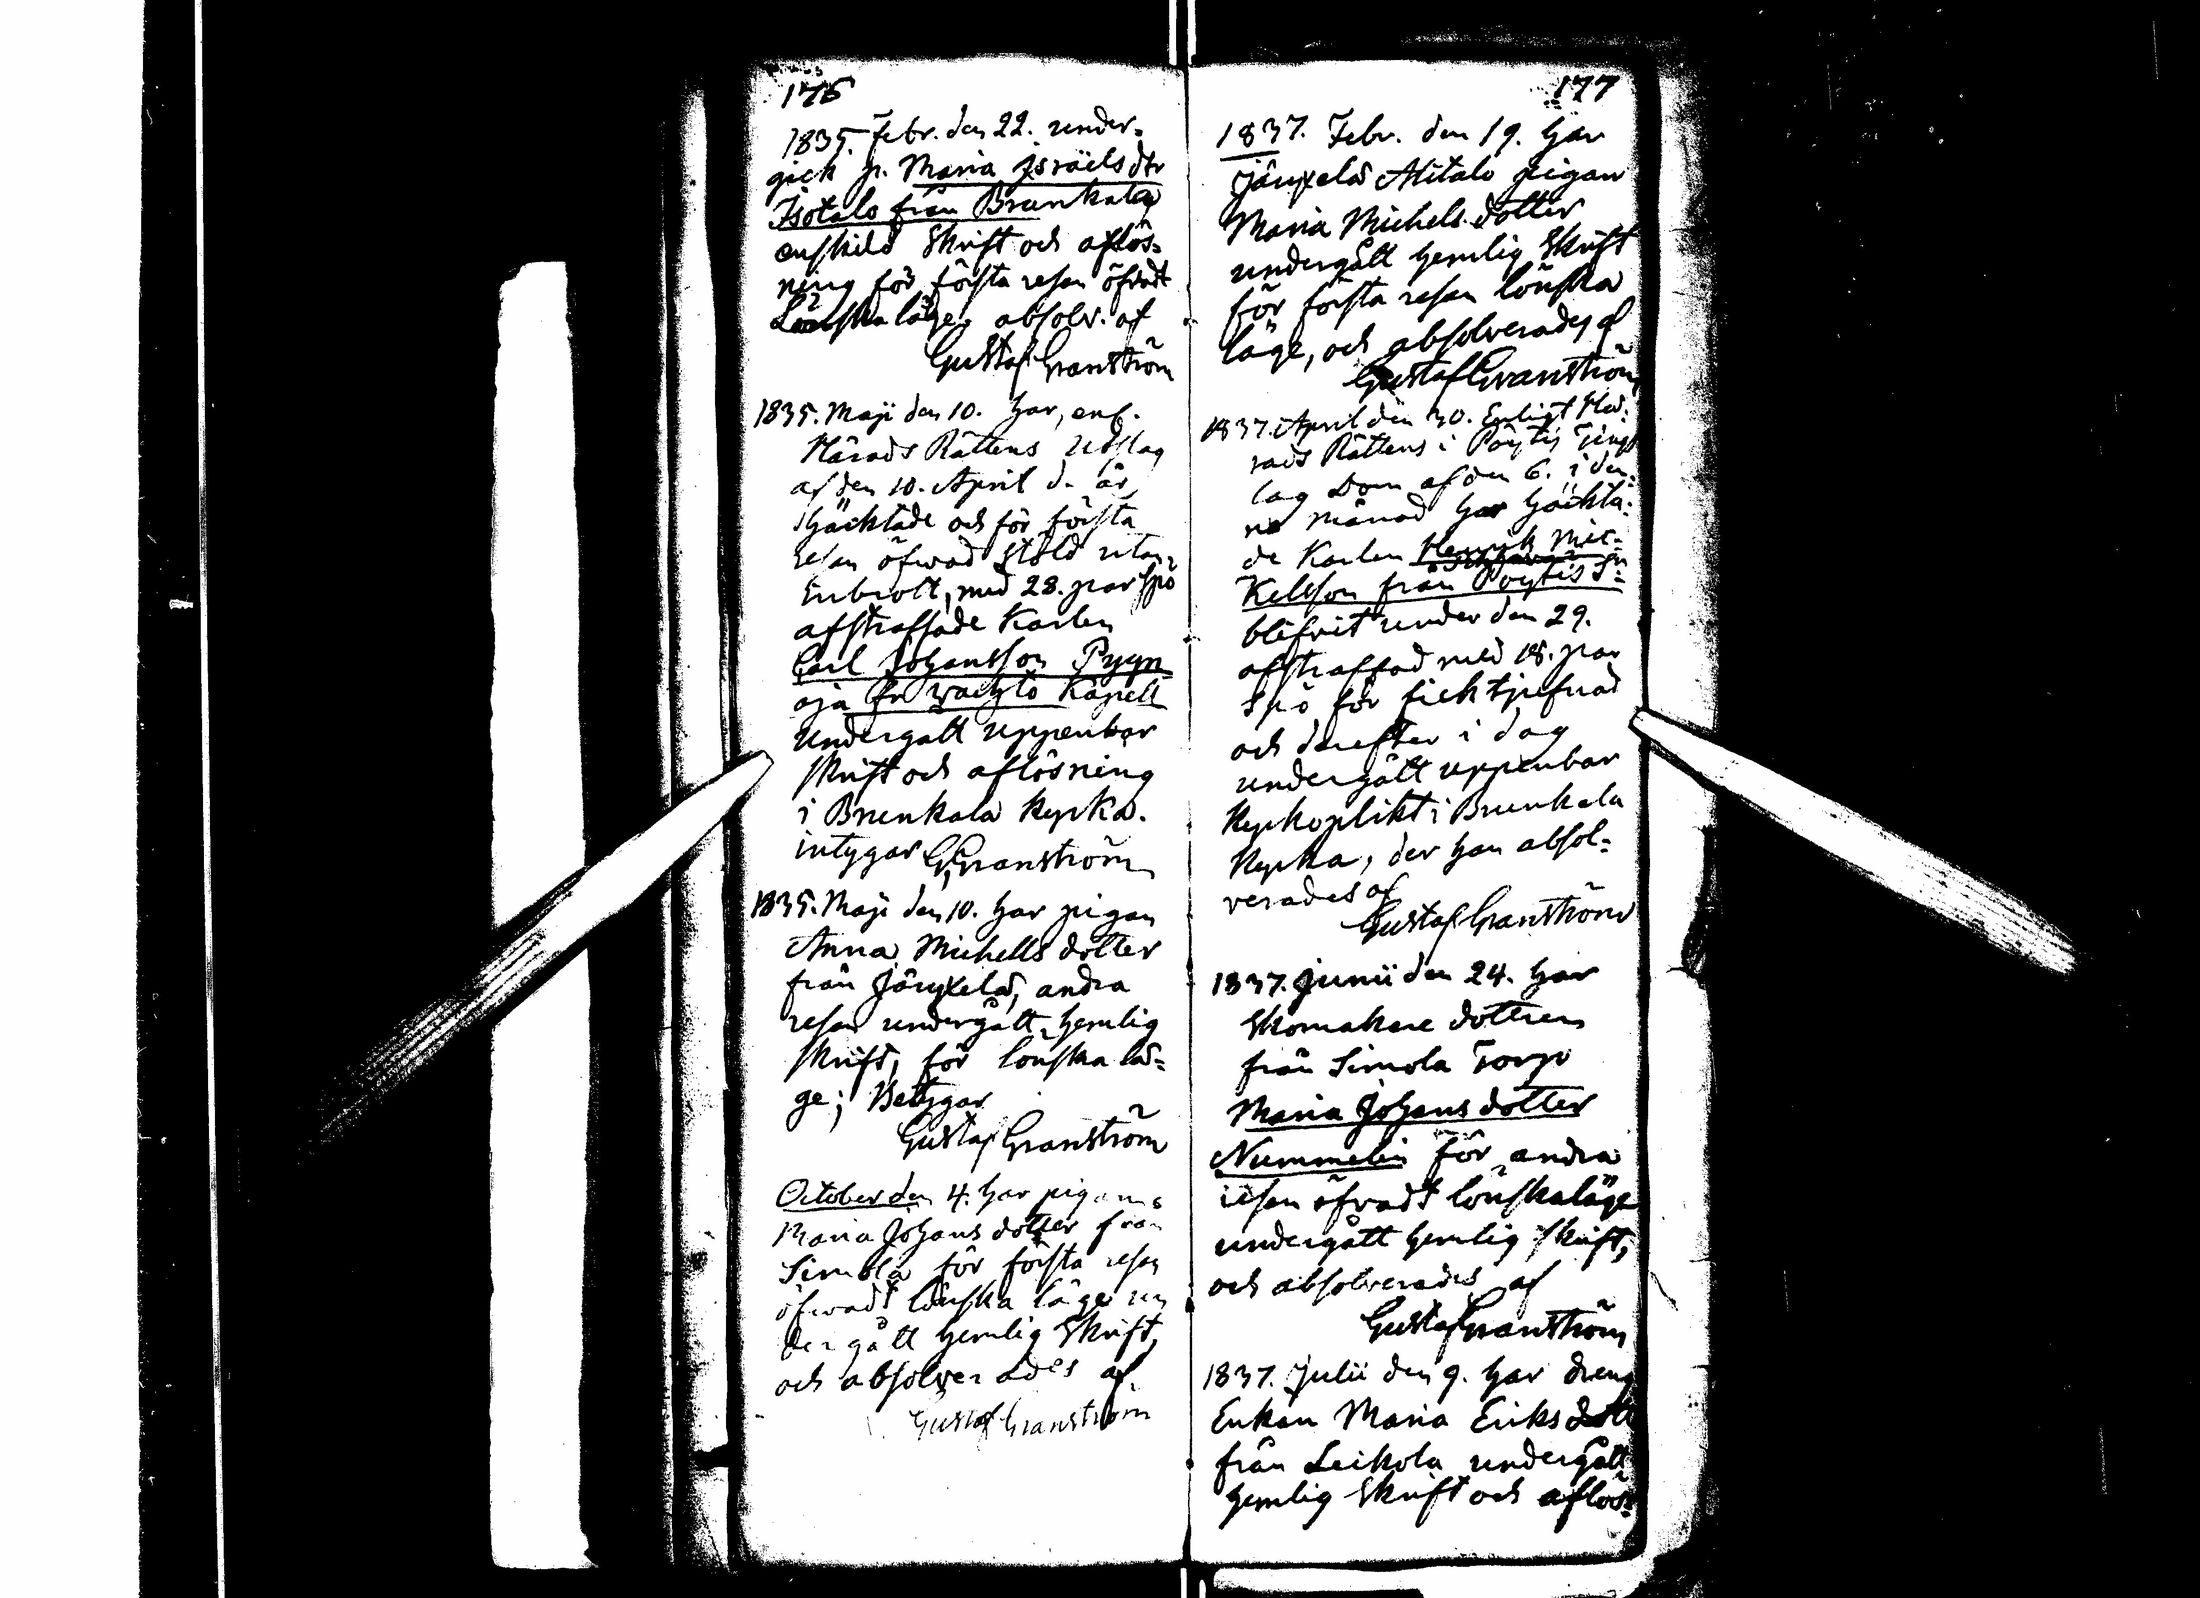 176
1835. Febr. den 22. under-
gick p. Maria Israelsdtr
Isotalo från Brunkala
enskild Skrift och aflös-
ning för första resan öfvadt
Lönskaläge, absolv. af
Gustaf Granström
1835. Maji den 10. har, enl.
Härads Rättens Utslag
af den 10. April d. år
häcktade och för första
resan öfvad Stöld utan
Inbrott, med 28. par Spö
afstraffade Karlen
Carl Johansson Pyyn
oja fr Kapell
Undergått uppenbar
skrift och aflösning
i Brunkala Kyrka.
intygar G. Granström
1835. Maji den 10. har pigan
Anna Michells dotter
från Järykelä, andra
resan undergått hemlig
skrift, för lönska lä-
ge; Betygar
Gustaf Granström
October den 4. har pigan
Maria Johans dotter från
Simola för första resan
öfvadt lönska läge un
dergått hemlig Skrift,
och absolverades af
Gustaf Granström
177
1837. Febr. den 19. har
Järykelä Alitalo pigan
Maria Michels dotter
undergått hemlig Skrift
för första resan lönska
läge, och absolverades af
Gustaf Granström
1837. April den 30. Enligt Hä-
rads Rättens i Pöytis Tings
lag Dom af den 6. i den-
na månad har häckta-
de Karlen Henrik Mic-
kelsson från Pöytis Sn
blifvit under den 29.
afstraffad med 18. par
Spö för ficktjufnad
och derefter i dag
undergått uppenbar
Kyrkoplikt i Brunkala
Kyrka, der han absol-
verades af
Gustaf Granström
1837. Junii den 24. har
Skomakare dottren
från Simola Torp
Maria Johans dotter
Nummelin för andra
resan öfvadt lönskaläge
undergått hemlig skrift,
och absolverades af
Gustaf Granström
1837. Julii den 9. har Dreng
Enkan Maria Eriks dott
från Leikola undergått
hemlig Skrift och aflös-